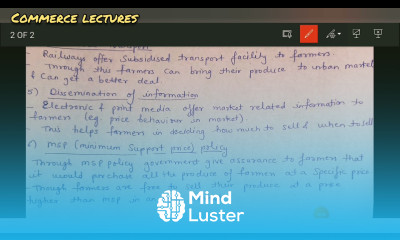 COMMERCE LECTURES
2 OF 2
- Railways offer subsidised transport facility to farmers.
- Through this farmers can bring their produce to urban market
& can get a better deal.
5) Dissemination of information
- Electronic & print media offer market related information to
farmers (eg. price behaviour in market)
- This helps farmers in deciding how much to sell & when to sell
MSP (minimum support price) policy
- Through MSP policy government give assurance to farmers that
it would purchase all the produce of farmer at a specific price
- Though farmers are free to sell their produce at a price
higher than MSP in
Mind
Luster